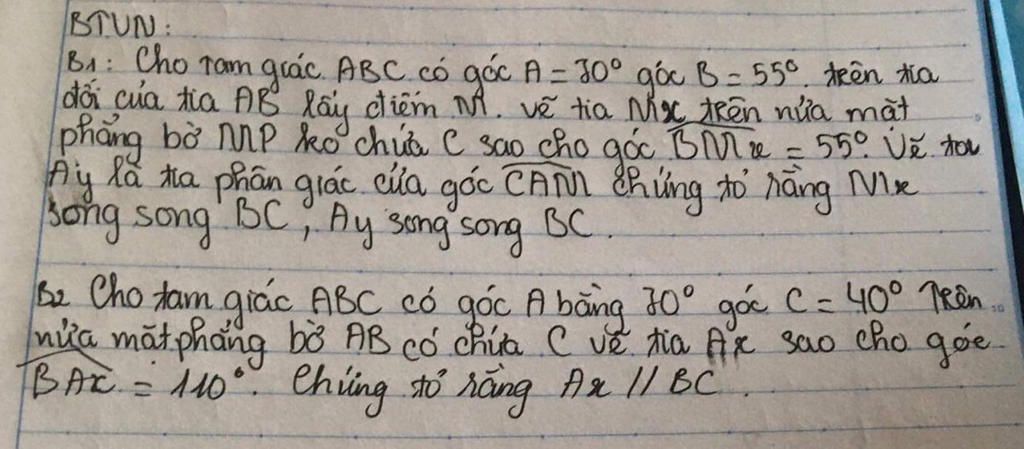 BTUN:
B1: Cho tam giác ABC có góc A = 70° góc B = 55°. trên tia
đối của tia AB lấy điểm M. vẽ tia Mx trên nửa mặt
phẳng bờ MP ko chứa C sao cho góc BMx = 55°. Vẽ tia
Ay là tia phân giác của góc CAM Chứng tỏ rằng Mx
song song BC, Ay song song BC.
B2 Cho tam giác ABC có góc A bằng 70° góc C = 40° Trên
nửa mặt phẳng bờ AB có chứa C vẽ tia Ax sao cho góc
BAx = 110°. Chứng tỏ rằng Ax // BC.